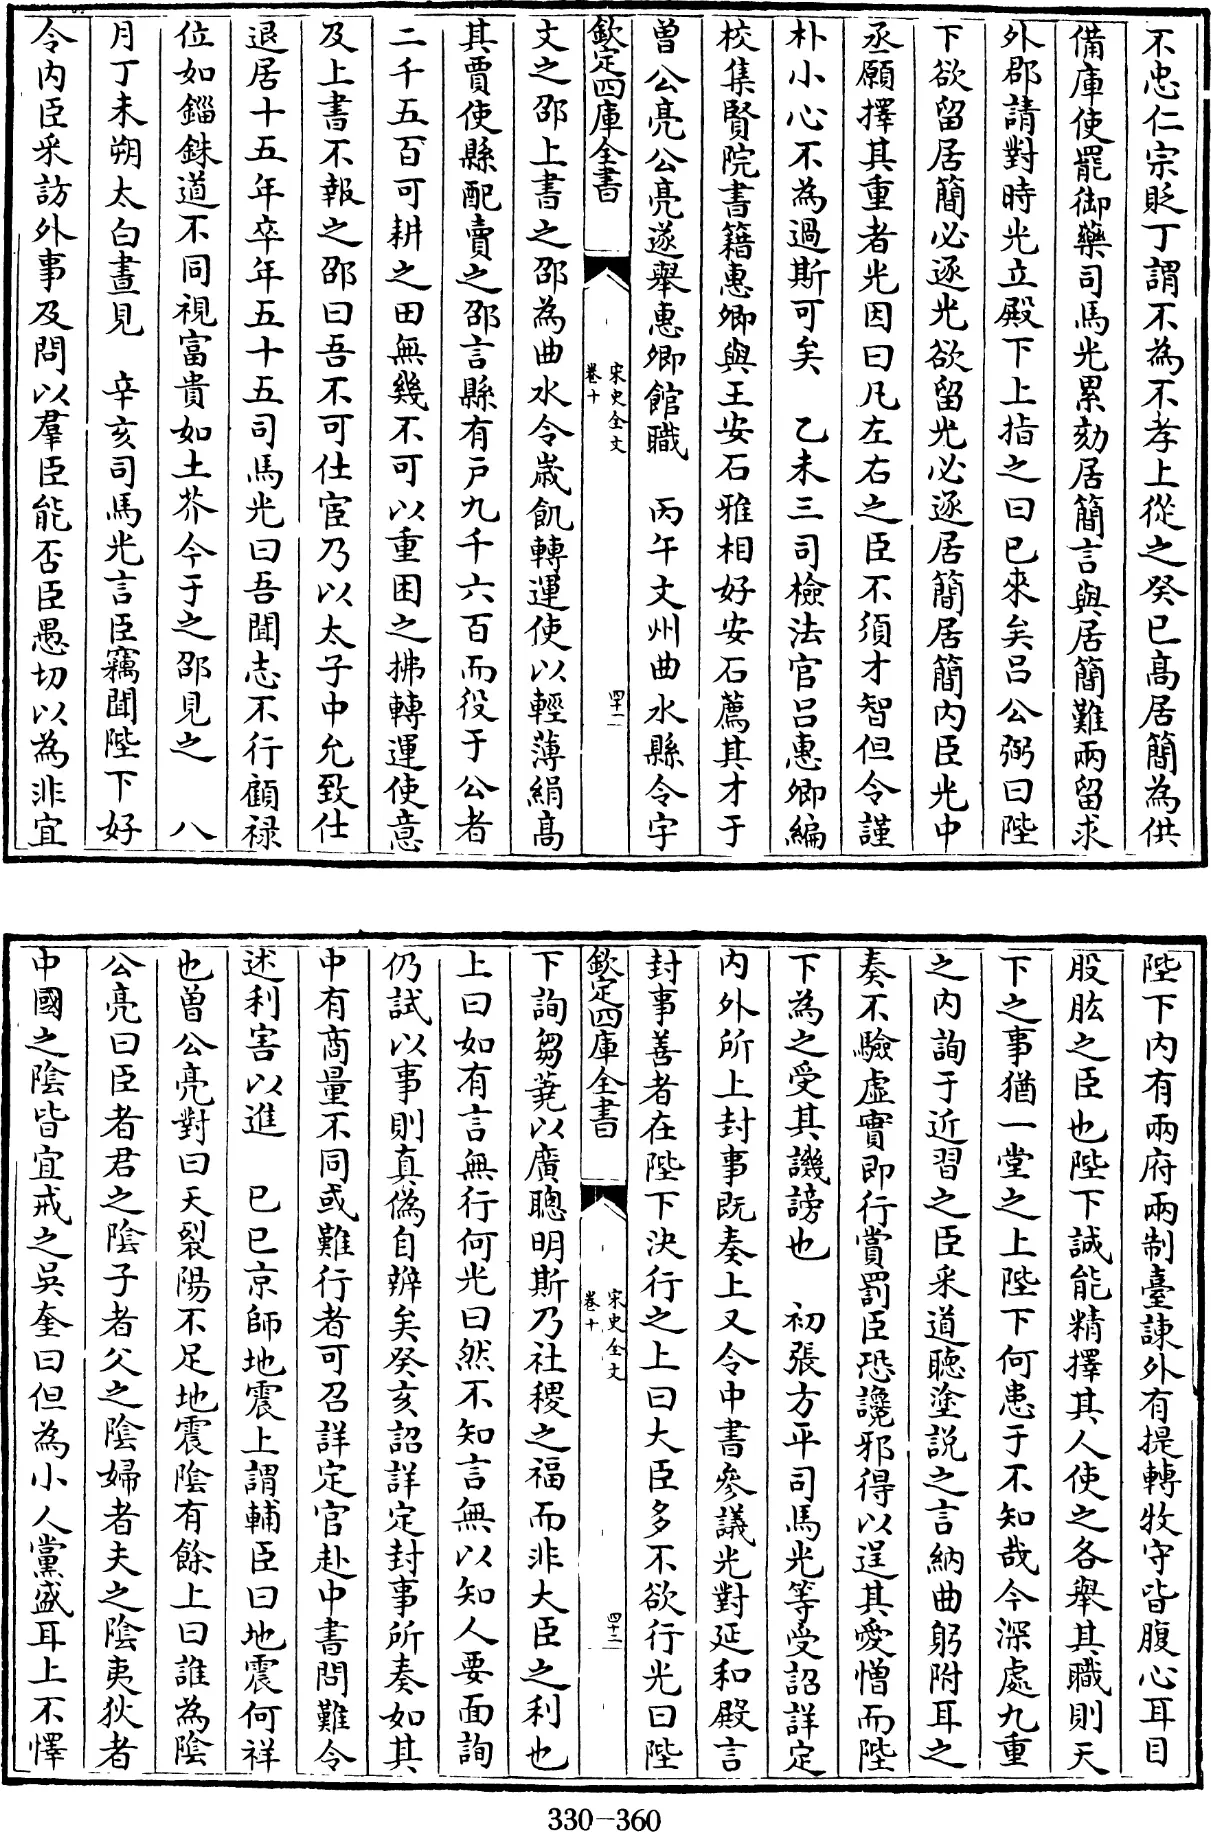 不忠仁宗貶丁謂不為不孝上從之癸巳髙居簡為供
備庫使罷御藥司馬光累劾居簡言與居簡難兩留求
外郡請對時光立殿下上指之曰已來矣吕公弼曰陛
下欲留居簡必逐光欲留光必逐居簡居簡内臣光中
丞願擇其重者光因曰凡左右之臣不須才智但令謹
朴小心不為過斯可矣　乙未三司檢法官吕惠卿編
校集賢院書籍惠卿與王安石雅相好安石薦其才于
曾公亮公亮遂舉惠卿館職　丙午文州曲水縣令宇
欽定四庫全書　宋史全文　卷十　四十一
文之邵上書之邵為曲水令嵗飢轉運使以輕薄絹髙
其賈使縣配賣之邵言縣有户九千六百而役于公者
二千五百可耕之田無幾不可以重困之拂轉運使意
及上書不報之邵曰吾不可仕宦乃以太子中允致仕
退居十五年卒年五十五司馬光曰吾聞志不行顧禄
位如錙銖道不同視富貴如土芥今于之邵見之　八
月丁未朔太白晝見　辛亥司馬光言臣竊聞陛下好
令内臣采訪外事及問以羣臣能否臣愚切以為非宜
陛下内有兩府兩制臺諫外有提轉牧守皆腹心耳目
股肱之臣也陛下誠能精擇其人使之各舉其職則天
下之事猶一堂之上陛下何患于不知哉今深處九重
之内詢于近習之臣采道聽塗説之言納曲躬附耳之
奏不驗虚實即行賞罰臣恐讒邪得以逞其愛憎而陛
下為之受其譏謗也　初張方平司馬光等受詔詳定
内外所上封事既奏上又令中書參議光對延和殿言
封事善者在陛下決行之上曰大臣多不欲行光曰陛
欽定四庫全書　宋史全文　卷十　四十二
下詢芻蕘以廣聰明斯乃社稷之福而非大臣之利也
上曰如有言無行何光曰然不知言無以知人要面詢
仍試以事則真偽自辨矣癸亥詔詳定封事所奏如其
中有商量不同或難行者可召詳定官赴中書問難令
述利害以進　己巳京師地震上謂輔臣曰地震何祥
也曾公亮對曰天裂陽不足地震陰有餘上曰誰為陰
公亮曰臣者君之陰子者父之陰婦者夫之陰夷狄者
中國之陰皆宜戒之吳奎曰但為小人黨盛耳上不懌
330-360